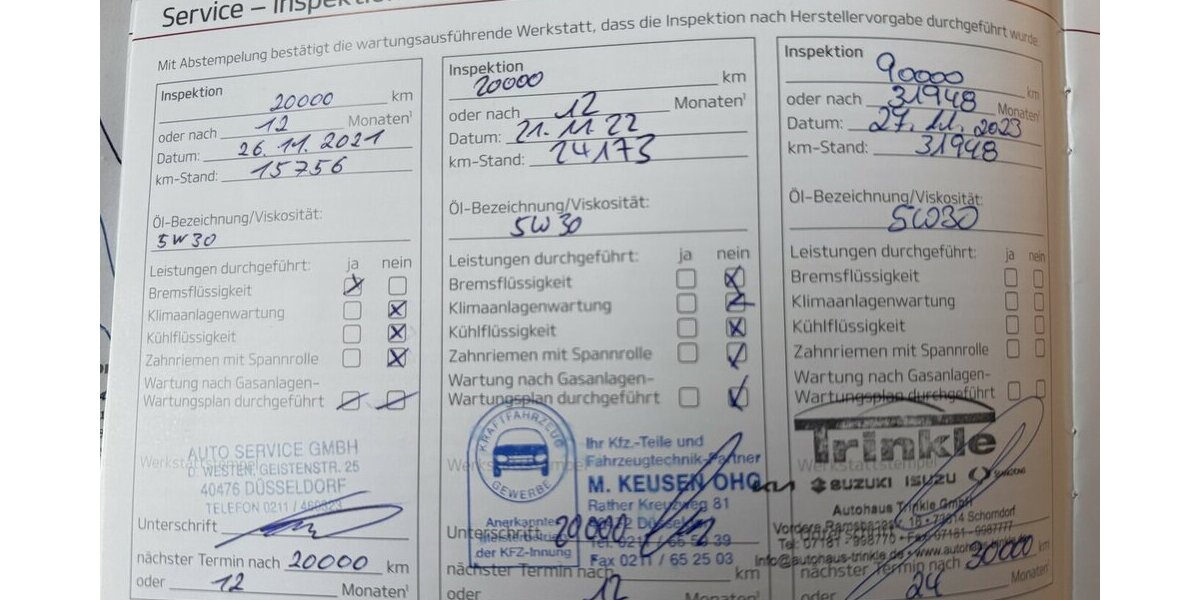 Service – Inspektion
Mit Abstempelung bestätigt die wartungsausführende Werkstatt, dass die Inspektion nach Herstellervorgabe durchgeführt wurde.
Inspektion 20000 km
oder nach 12 Monaten¹
Datum: 26.11.2021
km-Stand: 15756
Öl-Bezeichnung/Viskosität:
5W30
Leistungen durchgeführt: ja nein
Bremsflüssigkeit
Klimaanlagenwartung
Kühlflüssigkeit
Zahnriemen mit Spannrolle
Wartung nach Gasanlagen-
Wartungsplan durchgeführt
AUTO SERVICE GMBH
Werkstattstempel
GEISTENSTR. 25
40476 DÜSSELDORF
TELEFON 0211 /
Unterschrift
nächster Termin nach 20000 km
oder 12 Monaten¹
Inspektion
20000 km
oder nach 12 Monaten¹
Datum: 21.11.22
km-Stand: 24173
Öl-Bezeichnung/Viskosität:
5W30
Leistungen durchgeführt: ja nein
Bremsflüssigkeit
Klimaanlagenwartung
Kühlflüssigkeit
Zahnriemen mit Spannrolle
Wartung nach Gasanlagen-
Wartungsplan durchgeführt
KRAFTFAHRZEUG
GEWERBE
Anerkannter
Meisterbetrieb
der KFZ-Innung
Ihr Kfz.-Teile und
Fahrzeugtechnik-Partner
M. KEUSEN OHG
Rather Kreuzweg 81
Düsseldorf
Fax 0211 / 65 25 03
Unterschrift
nächster Termin nach 20000 km
oder 12 Monaten¹
Inspektion 90000 km
oder nach 31948 Monaten¹
Datum: 27.11.2023
km-Stand: 31948
Öl-Bezeichnung/Viskosität:
5W30
Leistungen durchgeführt: ja nein
Bremsflüssigkeit
Klimaanlagenwartung
Kühlflüssigkeit
Zahnriemen mit Spannrolle
Wartung nach Gasanlagen-
Wartungsplan durchgeführt
Trinkle
Werkstattstempel
SUZUKI ISUZU
Autohaus Trinkle GmbH
73614 Schorndorf
Tel: 07181 - 998770 • Fax 07181 - 9987777
Info@autohaus-trinkle.de
nächster Termin nach 20000 km
oder 24 Monaten¹